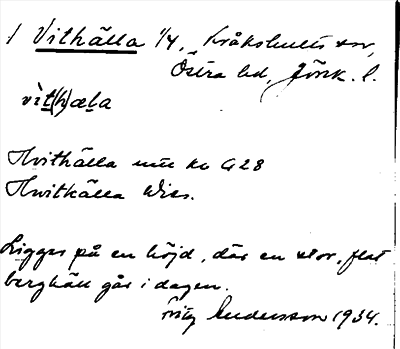 / Vithälla 1/4, Kråkshults sn,
Östra hd, Jönk. l.
vìt(h)æla
Hvithälla mtl kv G28
Hwitkälla Wiss.
Ligger på en höjd, där en stor, flat
berghäll går i dagen.
Andersson 1934.